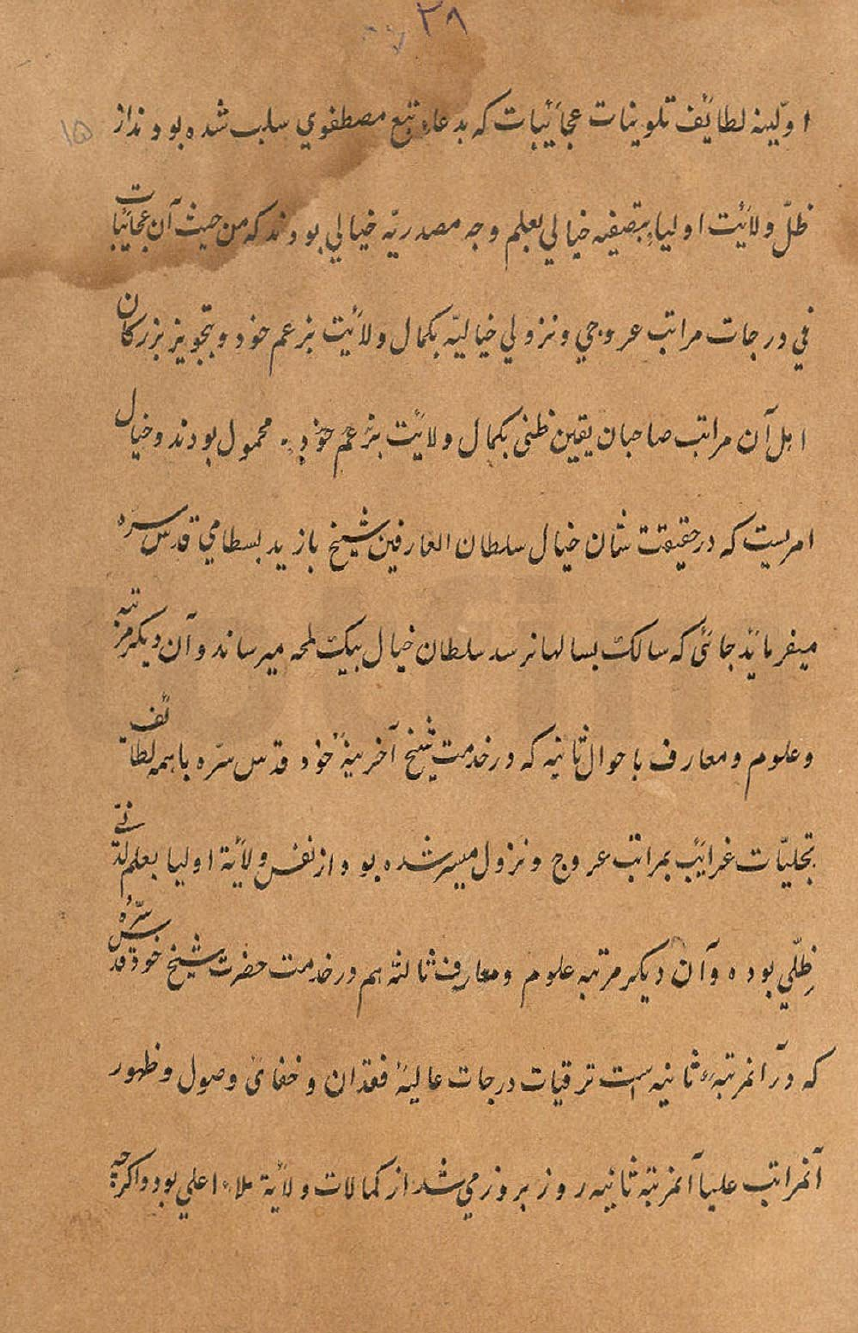 ۲۸
۱۵
اولینه لطائف تلوینات عجائبات که بدعاء تبع مصطفوي سلب شده بودند از
ظلّ ولائیت اولیاء بتصفیه خیالي بعلم وجه مصدریّه خیالي بودند که من حیث آن عجائبات
في درجات مراتب عروجي و نزولي خیالیّه بکمال ولائیت بزعم خود و بتجویز بزرکان
اهل آن مراتب صاحبان یقین ظنی بکمال ولائیت بزعم خود محمول بودند و خیال
امریست که درحقیقت شان خیال سلطان العارفین شیخ بازید بسطامي قدس سره
میفرمائد جائی که سالک بسالها نرسد سلطان خیال بیک لمحه میرساند و آن دیکر مرتبه
و علوم و معارف باحوال ثانیه که در خدمت شیخ آخرینهٔ خود قدس سرّه باهمه لطائف
تجلیّات غرائب بمراتب عروج و نزول میسر شده بود از نفس ولایة اولیا بعلم لدنّے
ظِلّي بوده و آن دیکر مرتبه علوم و معارف ثالثه هم در خدمت حضرت شیخ خود قدس سرّهُ
که در آنمرتبهٔ ثانیه است ترقیات درجات عالیهٔ فقدان و خفائ وصول و ظهور
آنمراتب علیا آنمرتبه ثانیه روز بروز می شد از کمالات ولایة ملاء اعلي بود و اکرچه